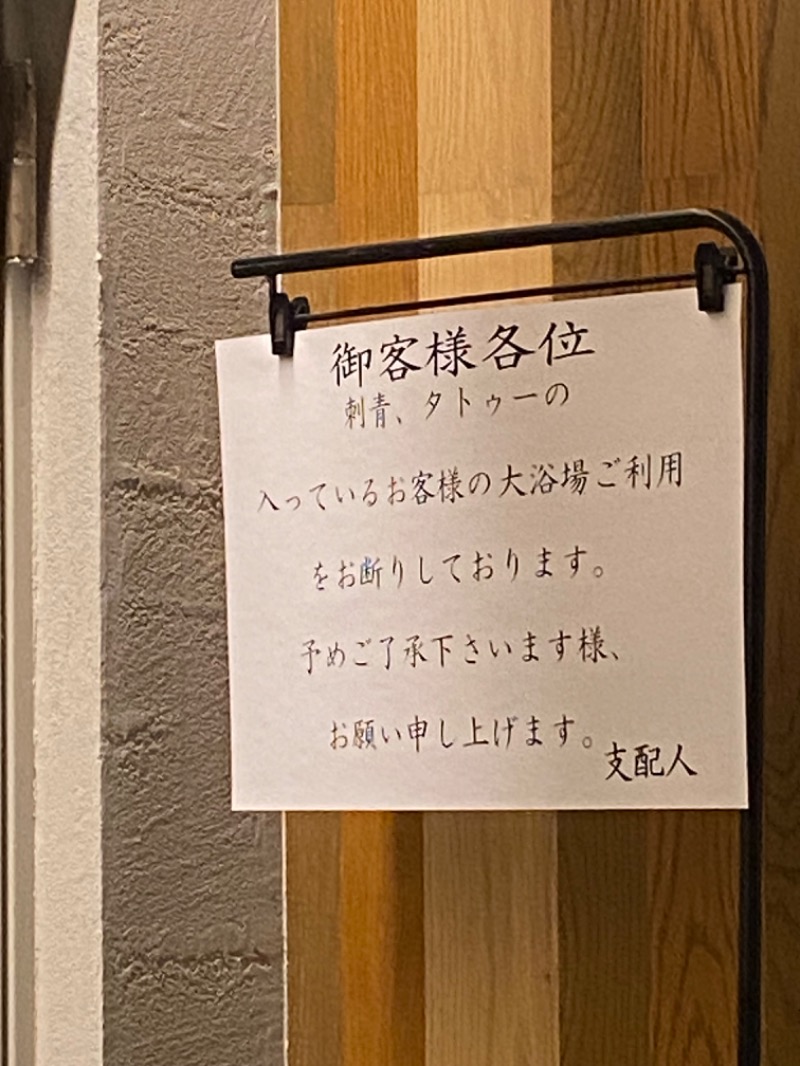 御客様各位
刺青、タトゥーの
入っているお客様の大浴場ご利用
をお断りしております。
予めご了承下さいます様、
お願い申し上げます。
支配人